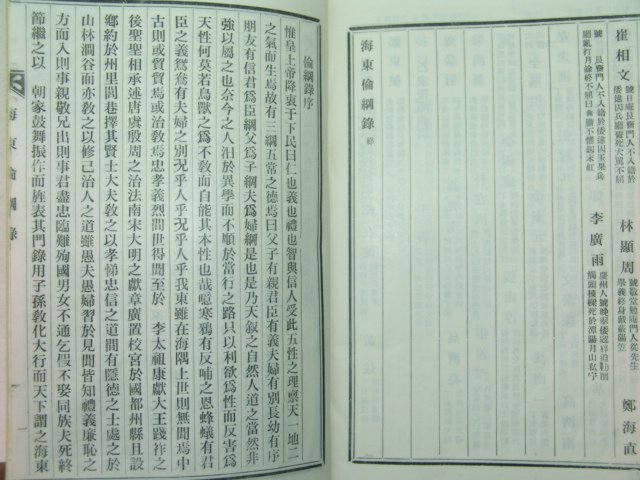 崔相文
號日庵艮齋門人不入籍於
倭遠囚兵廳賣死大罵不屈
林顯周
號敬堂勉庵門人從先生
擧義終身戴蔽陽笠
號 艮齋門人不入籍於倭遠囚玉果兵
李廣雨
慶州人號晚翠倭寇
鄭海直
海東倫綱錄 終
倫綱錄序
惟皇上帝降衷于下民曰仁也義也禮也智與信人受此五性之理禀天一地二
之氣而生焉故有三綱五常之德焉曰父子有親君臣有義夫婦有別長幼有序
朋友有信君爲臣綱父爲子綱夫爲婦綱是也是乃天叙之自然人道之當然非
強以屬之也奈今之人汨於異學而不順於當行之路只以利欲爲性而反害爲
天性何莫若鳥獸之爲不敎而自能其本性也哉噫寒鴉有反哺之恩蜂蟻有君
臣之義鴛鴦有夫婦之別况乎人乎况乎人乎我東雖在海隅上世則無聞焉中
古則或貿貿焉或治敎焉忠孝義烈間世得聞至於 李太祖康獻大王踐祚之
後聖聖相承述唐虞殷周之治法南宋大明之獻章廣置校宮於國都州縣且設
鄕約於州里閭巷擇其賢士大夫敎之以孝悌忠信之道間有隱德之士處之於
山林澗谷而亦敎之以修己治人之道雖愚夫愚婦習於見聞皆知禮義廉恥之
方而入則事親敬兄出則事君盡忠臨難殉國男女不通乞假不娶同族夫死終
節繼之以 朝家鼓舞振作而旌表其門錄用子孫敎化大行而天下謂之海東
海東倫綱錄